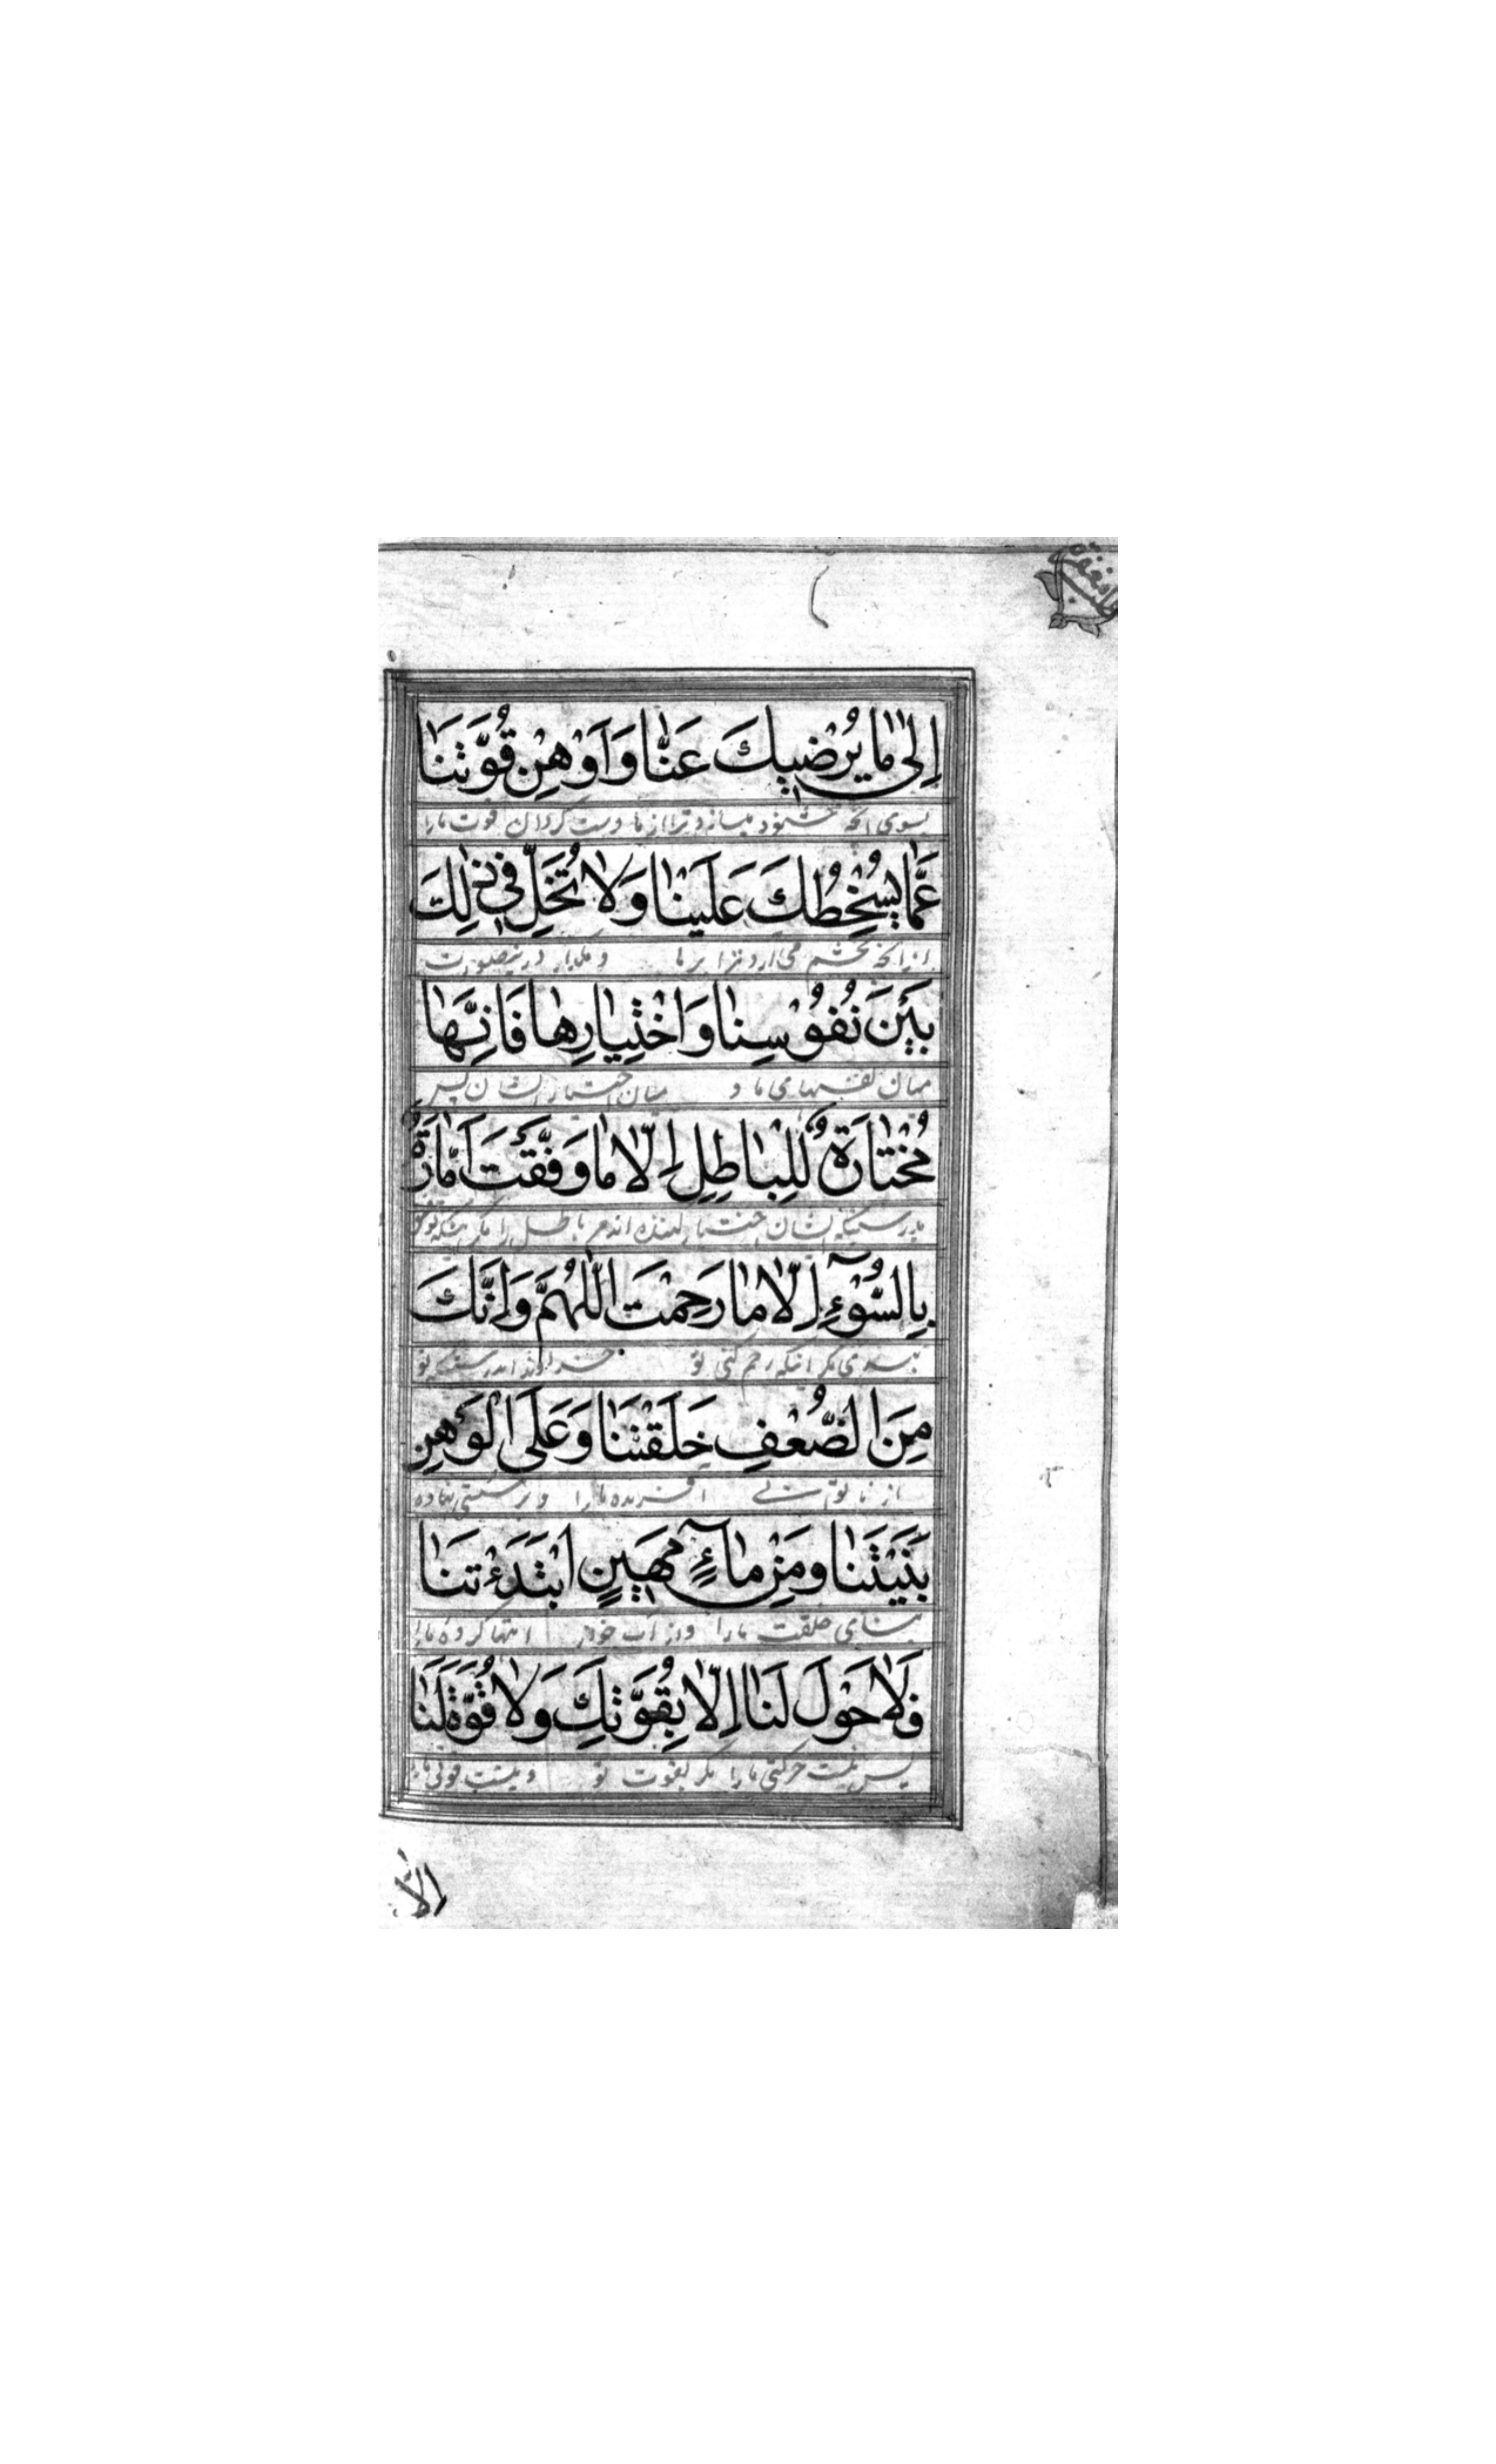 طلب مغفرة
اِلىٰ مٰا يُرْضيِكَ عَنّٰا وَاَوْهِنْ قُوَّتَنٰا
بسوی آنچه خشنود میسازد ترا از ما و سست گردان قوت ما را
عَمّٰا يُسْخِطُكَ عَلَيْنٰا وَلٰا تُخَلِّ في ذٰلِكَ
از آنچه بخشم می‌آرد ترا بر ما و مگذار درینصورت
بَيْنَ نُفُوْسِنٰا وَاخْتِيٰارِهٰا فَاِنَّهٰا
میان نفسهای ما و میان اختیار ایشان پس
مُخْتٰارَةٌ لِلْبٰاطِلِ اِلّٰا مٰا وَفَّقْتَ اَمّٰارَةٌ
بدرستیکه ایشان اختیار کننده اند مر باطل را مگر
بِالسُّوْۤءِ اِلّٰا مٰا رَحِمْتَ اَللّٰهُمَّ وَاِنَّكَ
ببدی مگر آنکه رحم کنی تو خداوندا بدرستیکه تو
مِنَ الضُّعْفِ خَلَقْتَنٰا وَعَلَى الْوَهْنِ
از ناتوانی آفریده ما را و بر سستی نهاده
بَنَيْتَنٰا وَمِنْ مٰاۤءٍ مَهيِنٍ ابْتَدَءْتَنٰا
بنای خلقت ما را و از آب خوار ابتدا کرده ما را
فَلٰا حَوْلَ لَنٰا اِلّٰا بِقُوَّتِكَ وَلٰا قُوَّةَ لَنٰا
پس نیست حرکتی ما را مگر بقوت تو و نیست قوتی ما را
اِلّٰا